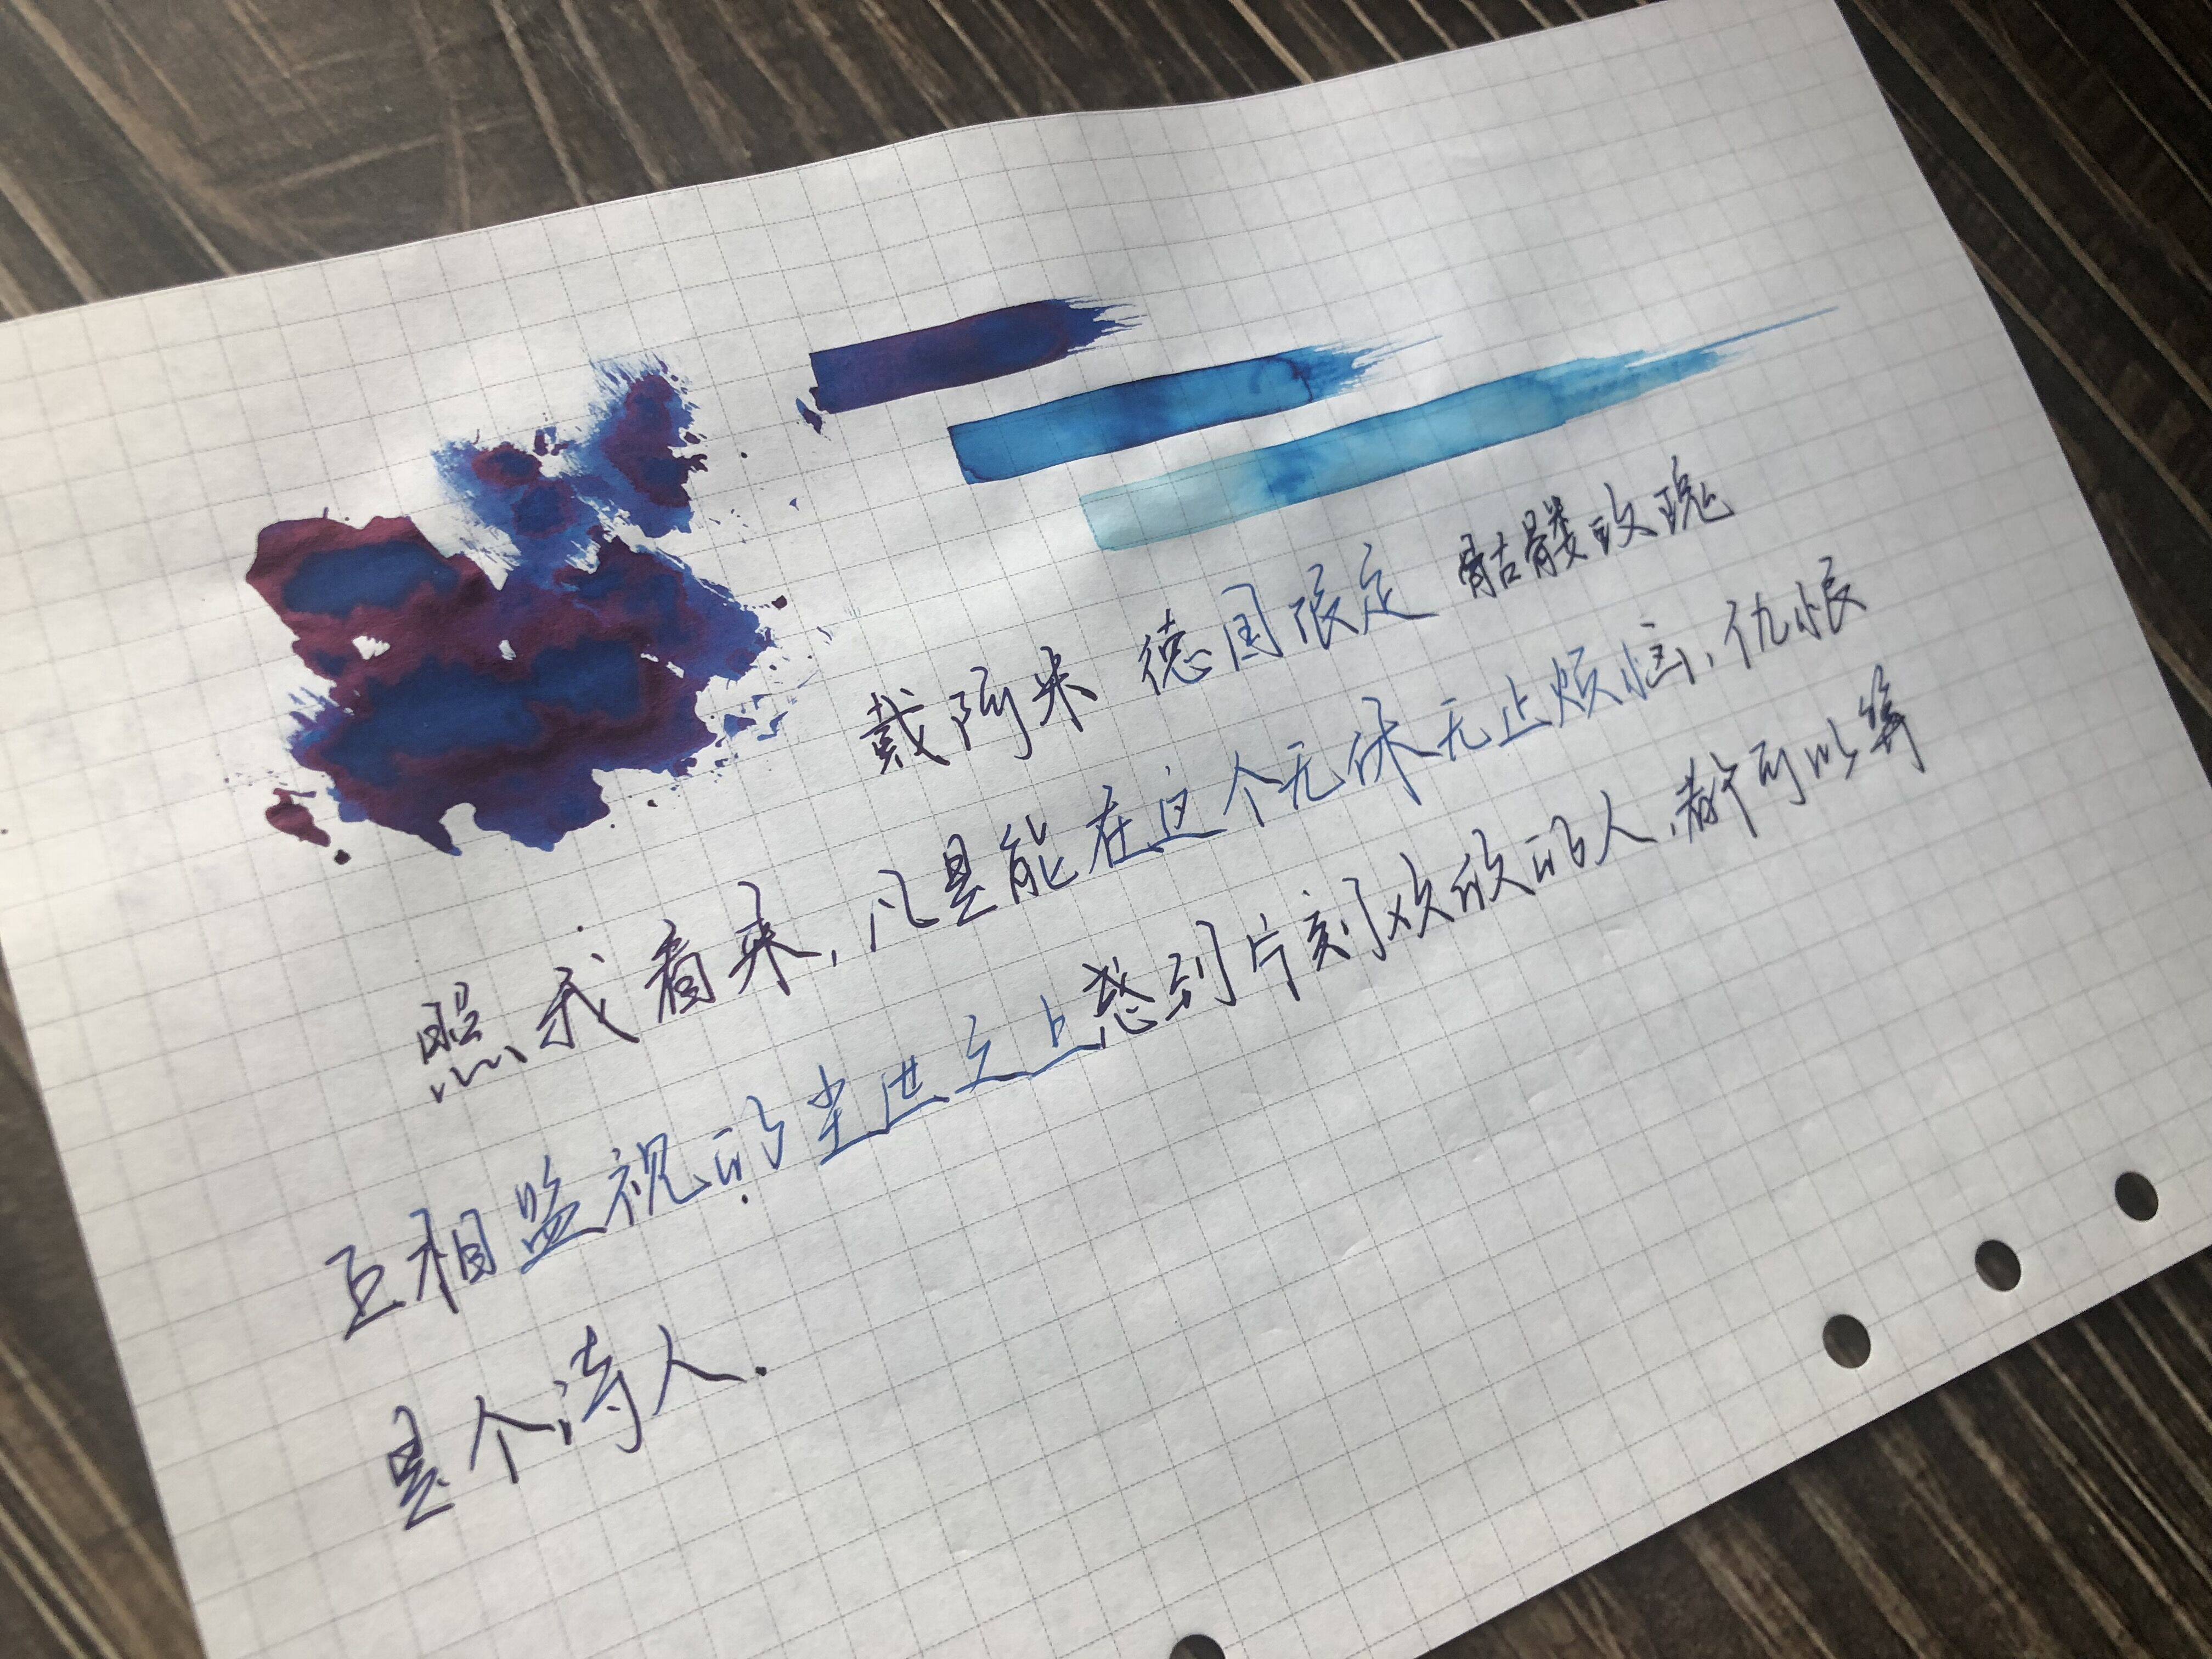 戴阿米 德国限定 骷髅玫瑰
照我看来,凡是能在这个无休无止烦恼、仇恨
互相监视的尘世之上感到片刻欢欣的人,都可以算
是个诗人.